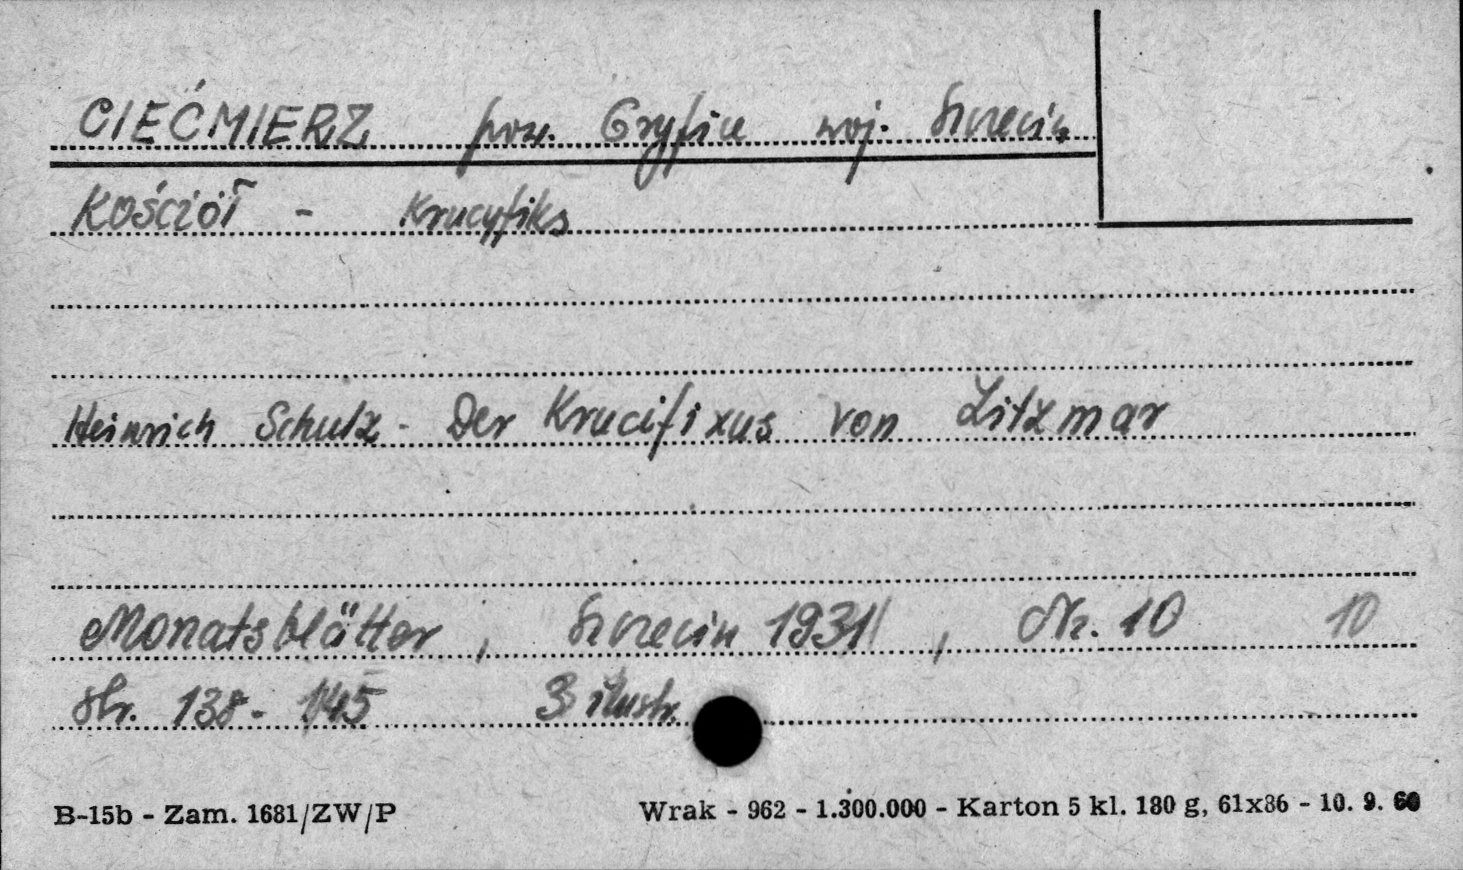 CIEĆMIERZ pow. Gryfice woj. Szczecin
KOŚCIÓŁ - Krucyfiks
Heinrich Schulz - Der Krucifixus von Zitzmar
Monatsblätter, Szczecin 1931, Nr. 10 10
str. 138 - 145 3 ilustr.
B-15b - Zam. 1681/ZW/P Wrak - 962 - 1.300.000 - Karton 5 kl. 180 g, 61x86 - 10. 9. 60